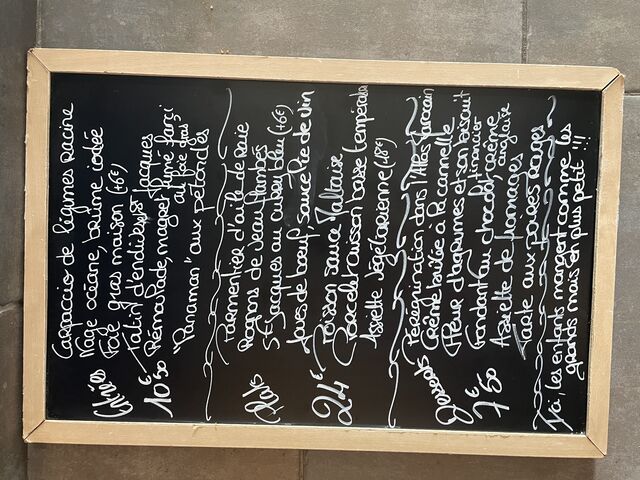 Entrées
10€50
Carpaccio de légumes racine
Nage océane, brume iodée
Foie gras maison (+6€)
Tatin d'endives, St Jacques
Rémoulade, magret fumé farci
au foie gras
"Panaman" aux pétoncles
Plats
24€
Parmentier d'aile de Raie
Rognons de veau flambés
St-Jacques au curbeu bleu (+6€)
Joues de boeuf, sauce lie de vin
Poisson sauce Maltaise
cuisson basse température
Assiette végétarienne (18€)
Desserts
7€50
Pérégrination dans l'Atlas marocain
Crème brûlée à la cannelle
Fleur d'agrumes et son biscuit
financier
Fondant au chocolat, crème
anglaise
Assiette de fromages
Tarte aux poires rouges
Ici, les enfants mangent comme les
grands mais en plus petit !!!